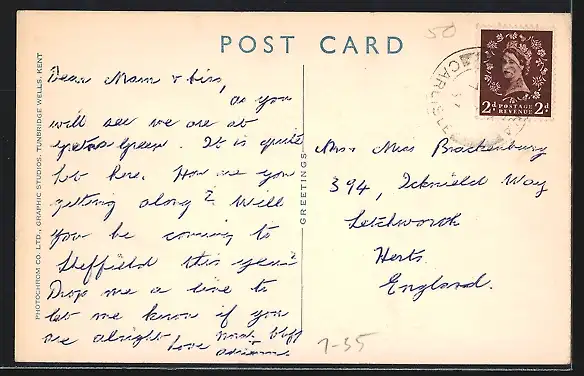 50
POST CARD
CARLISLE
2d POSTAGE REVENUE 2d
PHOTOCHROM CO. LTD., GRAPHIC STUDIOS, TUNBRIDGE WELLS, KENT
GREETINGS
Dear Mam &
as you
will see we are at
Green. It is quite
hot here. How are you
getting along? Will
you be coming to
Sheffield this year?
Drop me a line to
let me know if you
are alright Love
Miss Brackenbury
394, Icknield Way
Letchworth
Herts.
England.
7-55